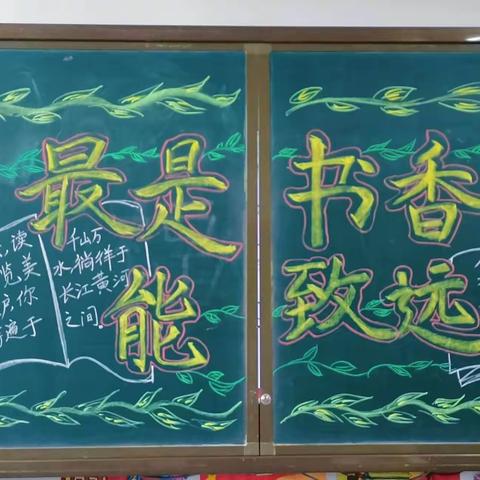 最是书香
能致远
读
览美
你
遍于
千山万
水徜徉于
长江黄河
之间.